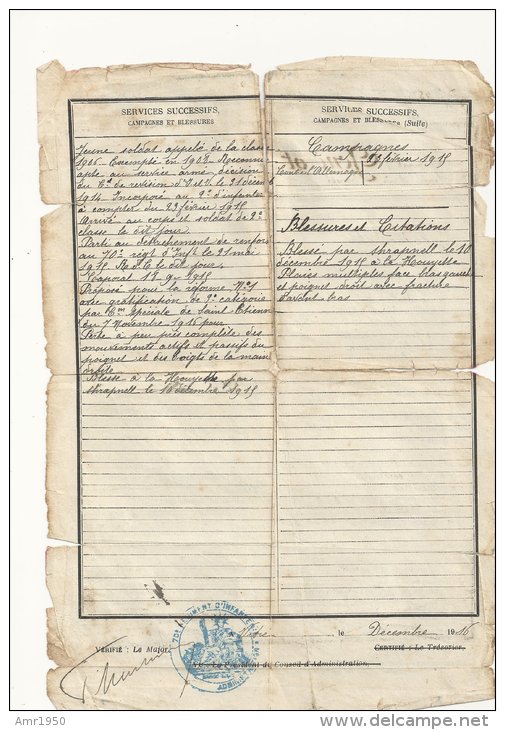 SERVICES SUCCESSIFS,
CAMPAGNES ET BLESSURES
Jeune soldat appelé de la classe
1906 Exempté en 1908 Reconnu
apte au service armé décision
du de révision d'I et V. le 31 décemb
1914 Incorporé au 2e d'infanterie
à compter du 23 février 1915
Arrivé au corps et soldat de 2e
classe le dit jour
Parti au détachement de renfort
au 70e régt d'Inft le 21 mai
1915 le dit jour
Caporal 1915
Proposé pour la réforme No 1
avec gratification de 2e catégorie
par Cm Spéciale de Saint Etienne
du 7 Novembre 1916 pour
Perte à peu près complète des
mouvements actifs et passifs du
poignet et des doigts de la main
droite
Blessé à la Houyette par
shrapnell le 10 décembre 1915
SERVICES SUCCESSIFS,
CAMPAGNES ET BLESSURES (Suite)
Campagnes
23 février 1915
Contre l'Allemagne
Blessures et Citations
Blessé par shrapnell le 10
décembre 1915 à la Houyette
Plaies multiples face bras gauche
et poignet droit avec fracture
avant bras
70e REGIMENT D'INFANTERIE
le Décembre 1916
VÉRIFIÉ : Le Major,
CERTIFIÉ : Le Trésorier,
VU : Le Président du Conseil d'Administration,
Amr1950
www.delcampe.net